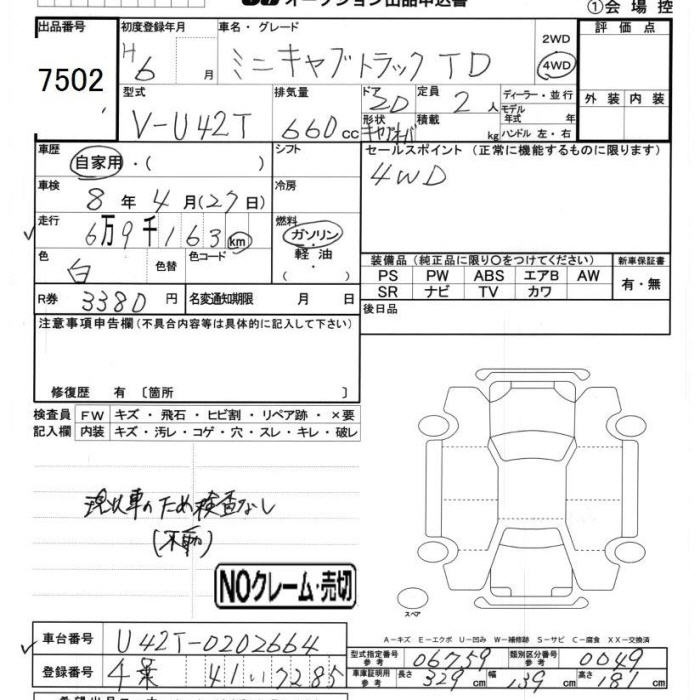 オークション出品申込書
①会場控
出品番号
7502
初度登録年月
H6 月
車名・グレード
ミニキャブトラック TD
2WD
4WD
評価点
外装 内装
型式
V-U42T
排気量
660cc
ドア
2D
定員
2人
形状
積載
kg
ディーラー・並行
モデル
年式 年
ハンドル 左・右
車歴
自家用・( )
シフト
セールスポイント (正常に機能するものに限ります)
4WD
車検
8年4月(27日)
冷房
走行
6万9千163km
燃料
ガソリン・
軽油・
( )
色
白
色替
色コード
装備品(純正品に限り○をつけてください)
新車保証書
PS PW ABS エアB AW
SR ナビ TV カワ
有・無
R券
3380円
名変通知期限 月 日
後日品
注意事項申告欄(不具合内容等は具体的に記入して下さい)
修復歴 有 〔箇所 〕
検査員 FW キズ・飛石・ヒビ割・リペア跡・×要
記入欄 内装 キズ・汚レ・コゲ・穴・スレ・キレ・破レ
現状車のため検査なし
(不動)
NOクレーム・売切
スペア
A－キズ E－エクボ U－凹み W－補修跡 S－サビ C－腐食 XX－交換済
車台番号
U42T-0202664
登録番号
41 い 7285
型式指定番号
参考
06759
類別区分番号
参考
0049
車庫証明用
参考
長さ
329cm
幅
139cm
高さ
181cm